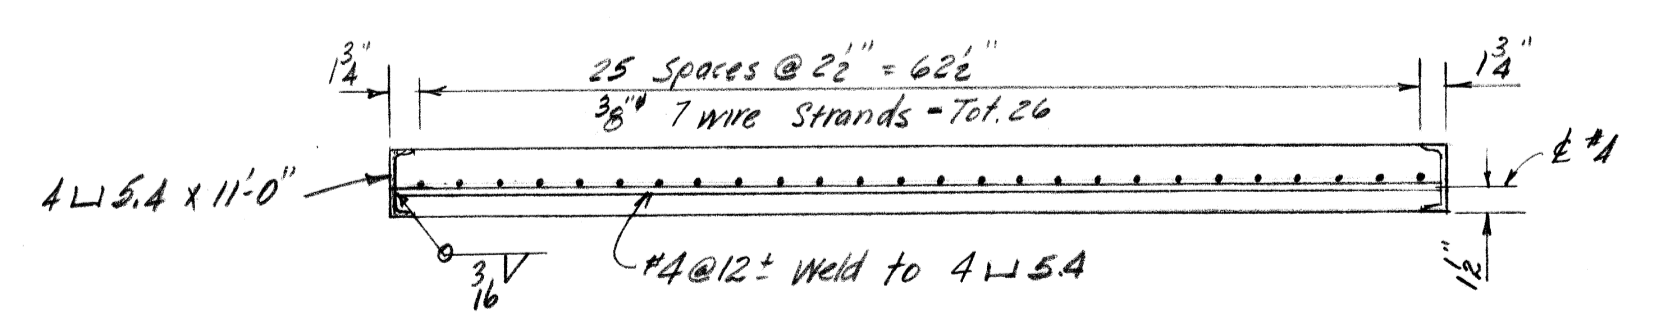 1 3/4"
25 Spaces @ 2 1/2" = 62 1/2"
1 3/4"
3/8"ø 7 wire Strands - Tot. 26
℄ #4
4 ⊔ 5.4 x 11'-0"
3/16
#4 @ 12 ± Weld to 4 ⊔ 5.4
1 1/2"